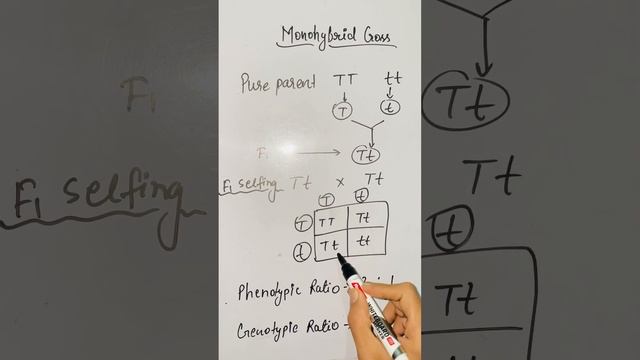 Monohybrid Cross
Pure parent TT tt
T t
F1 → Tt
F1 selfing Tt x Tt
T t
T TT Tt
t Tt tt
Phenotypic Ratio -
Genotypic Ratio -
F1
F1 selfing
Tt
Tt
t
Tt